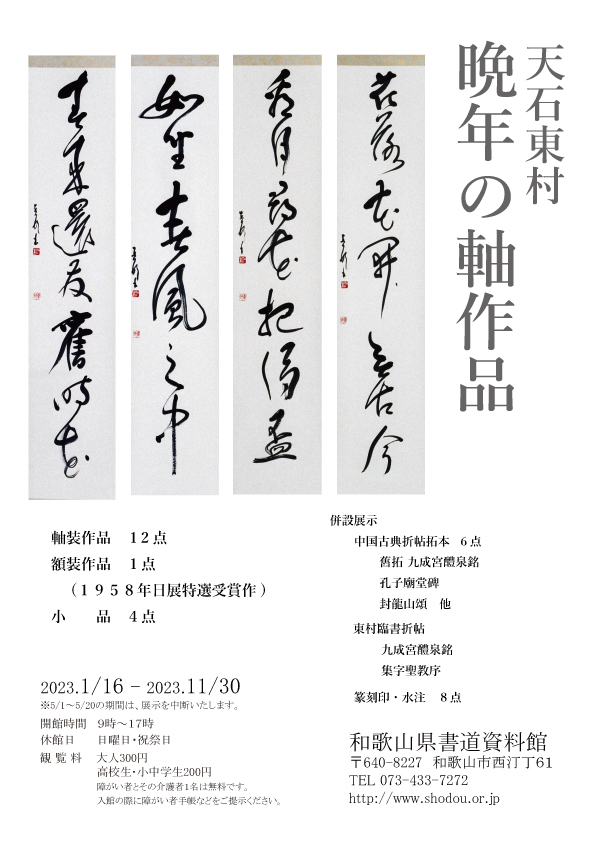 天石東村
晩年の軸作品
花落花開無古今
看月尋花把酒盃
如坐春風之中
春来還发舊時花
軸装作品　１２点
額装作品　１点
（１９５８年日展特選受賞作）
小　　品　４点
併設展示
中国古典折帖拓本　６点
舊拓 九成宮醴泉銘
孔子廟堂碑
封龍山頌　他
東村臨書折帖
九成宮醴泉銘
集字聖教序
篆刻印・水注　８点
2023.1/16 − 2023.11/30
※5/1〜5/20の期間は、展示を中断いたします。
開館時間　9時〜17時
休館日　日曜日・祝祭日
観 覧 料　大人300円
高校生・小中学生200円
障がい者とその介護者1名は無料です。
入館の際に障がい者手帳などをご提示ください。
和歌山県書道資料館
〒640-8227　和歌山市西汀丁61
TEL 073-433-7272
http://www.shodou.or.jp